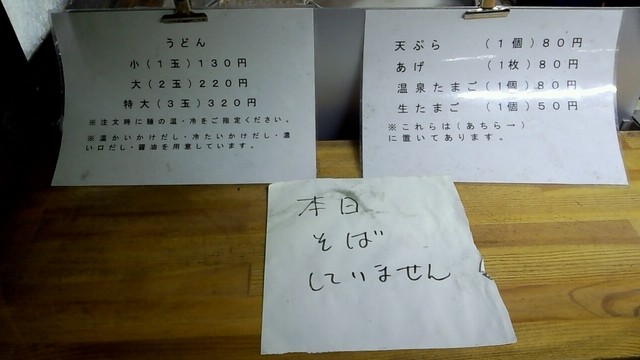 うどん
小(1玉)130円
大(2玉)220円
特大(3玉)320円
※注文時に麺の温・冷をご指定ください。
※温かいかけだし・冷たいかけだし・濃
い口だし・醤油を用意しています。
天ぷら (1個)80円
あげ (1枚)80円
温泉たまご(1個)80円
生たまご (1個)50円
※これらは(あちら→)
に置いてあります。
本日
そば
していません